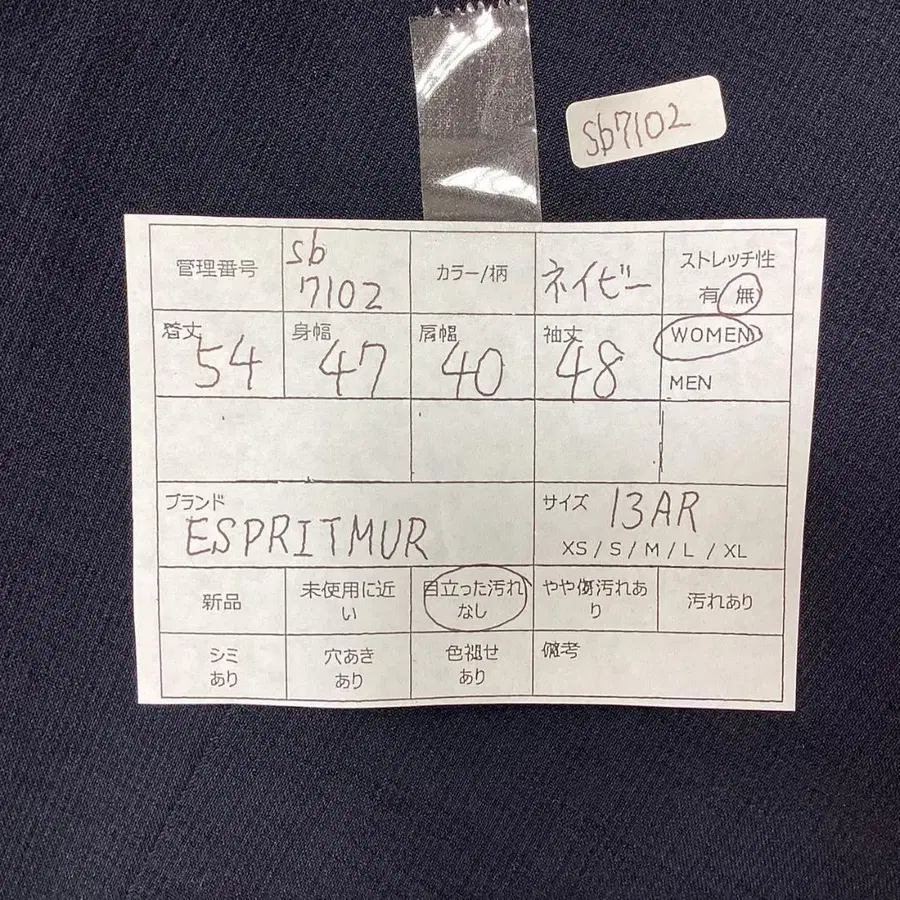 sb7102
管理番号
sb
7102
カラー/柄
ネイビー
ストレッチ性
有 無
着丈
54
身幅
47
肩幅
40
袖丈
48
WOMEN
MEN
ブランド
ESPRITMUR
サイズ
13AR
XS / S / M / L / XL
新品
未使用に近
い
目立った汚れ
なし
やや傷汚れあ
り
汚れあり
シミ
あり
穴あき
あり
色褪せ
あり
備考